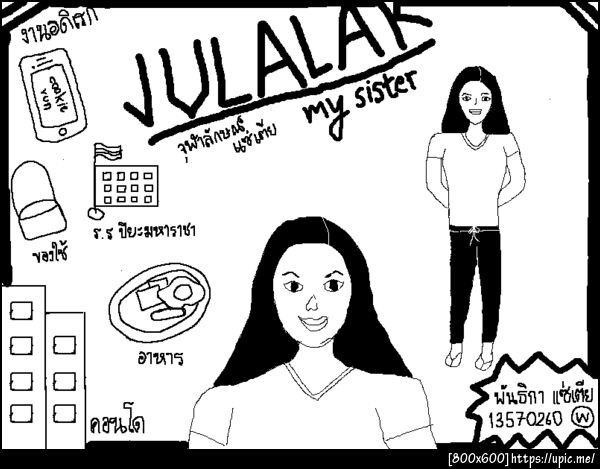 งานอดิเรก
JULALAK
my sister
จุฬาลักษณ์
แซ่เตีย
cookie
run
ร.ร ปิยะมหาราชา
ของใช้
อาหาร
คอนโด
พันธิกา แซ่เตีย
13570260 W
[800x600]https://upic.me/